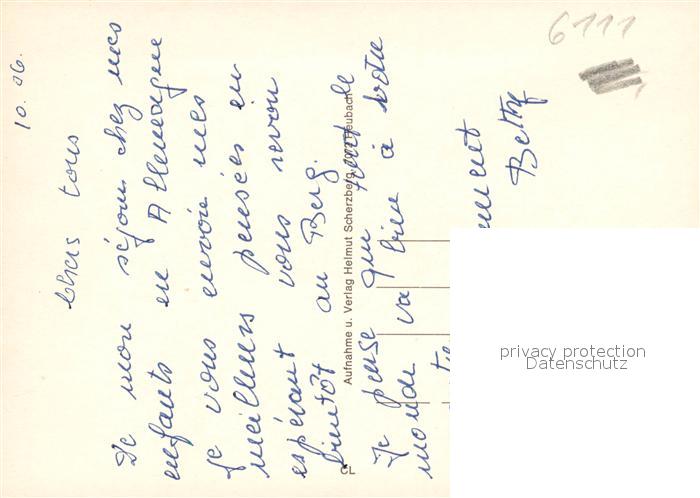 10.06.
Chers tous
De mon séjour chez mes
enfants en Allemagne
je vous envoie mes
meilleurs pensées en
espérant vous revoir
bientôt au Berg.
Je pense que tout le
monde va bien à votre
Betty
Aufnahme u. Verlag Helmut Scherzberg, 7072 Heubach
CL
6111
privacy protection
Datenschutz